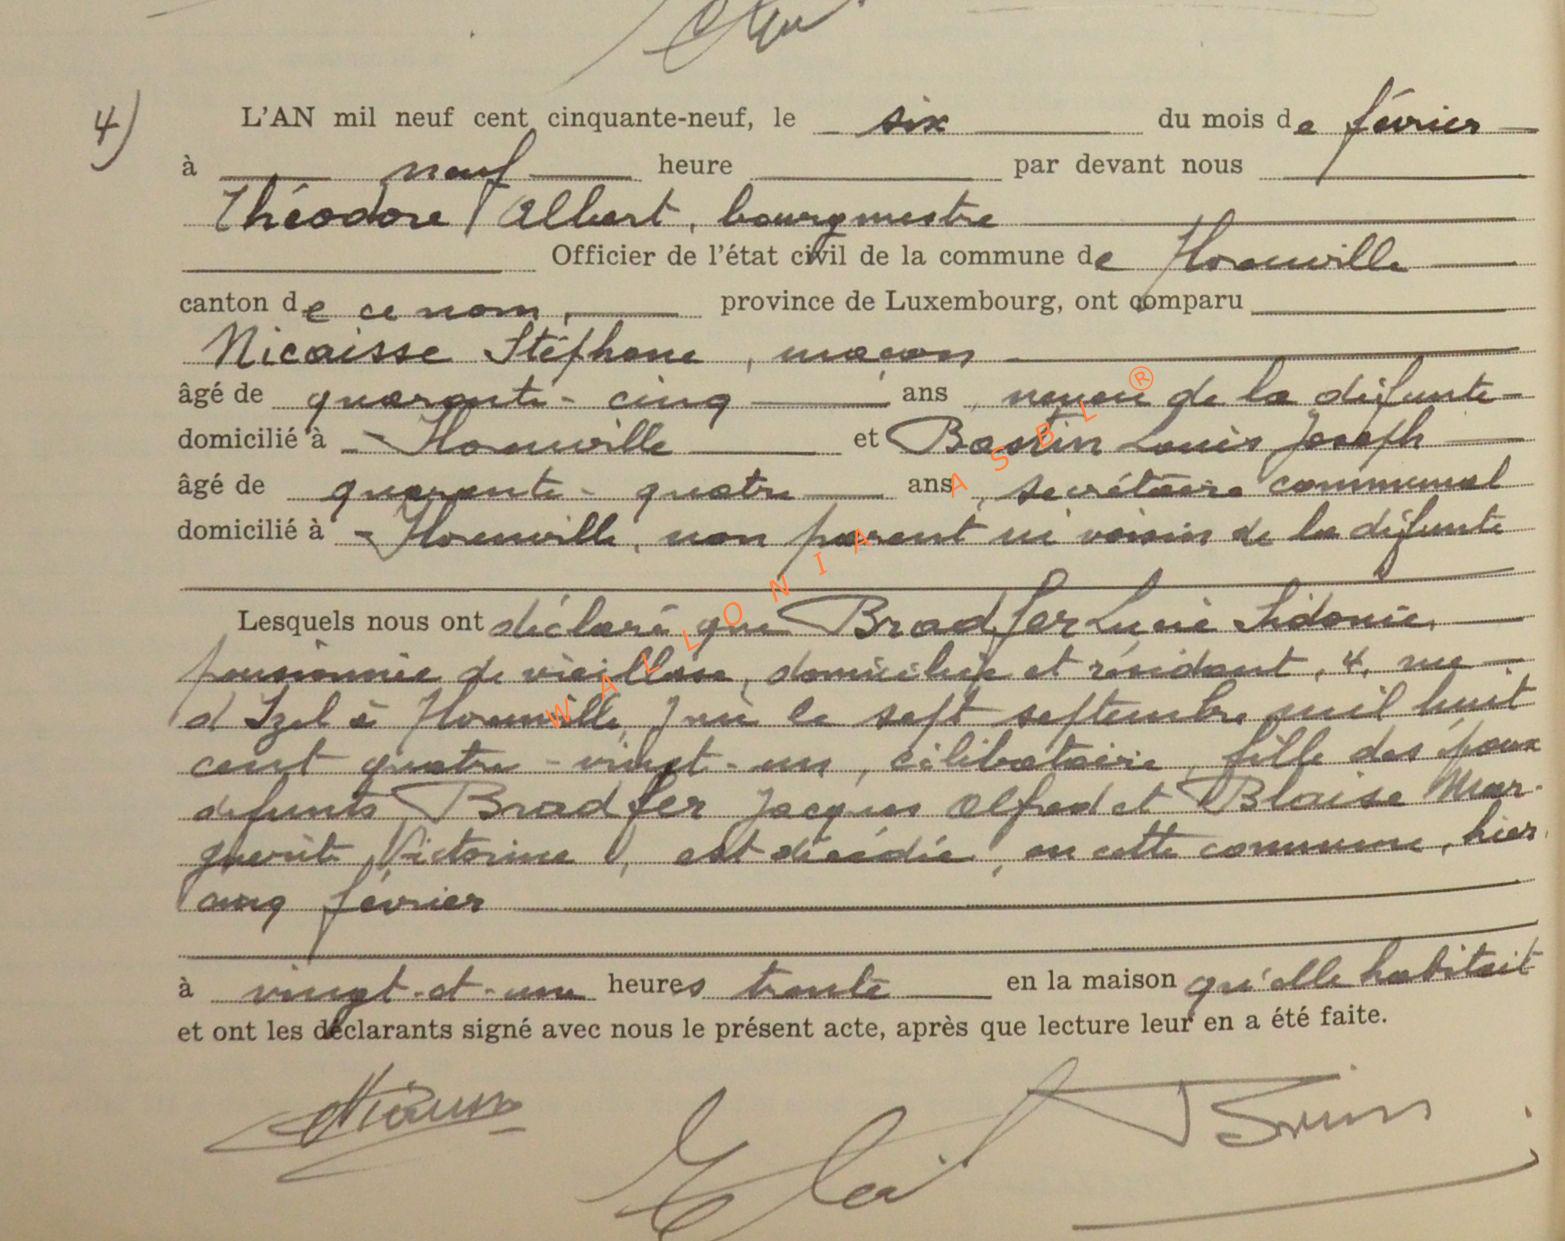 4)
L'AN mil neuf cent cinquante-neuf, le six du mois de février
à neuf heure par devant nous
Théodore Albert, bourgmestre
Officier de l'état civil de la commune de Florenville
canton de ce nom, province de Luxembourg, ont comparu
Nicaisse Stéphane, maçon
âgé de quarante-cinq ans, neveu de la défunte
domicilié à Florenville et Bastin Louis Joseph
âgé de quarante-quatre ans, secrétaire communal
domicilié à Florenville, non parent ni voisin de la défunte
Lesquels nous ont déclaré que Bradfer Lucie Sidonie,
pensionnée de vieillesse, domiciliée et résidant, 4, rue
d'Izel à Florenville, née le sept septembre mil huit
cent quatre-vingt-un, célibataire, fille des époux
défunts Bradfer Jacques Alfred et Blaise Mar-
guerite Victorine, est décédée, en cette commune, hier
cinq février
à vingt-et-une heures trente en la maison qu'elle habitait
et ont les déclarants signé avec nous le présent acte, après que lecture leur en a été faite.
WALLONIA ASBL ®